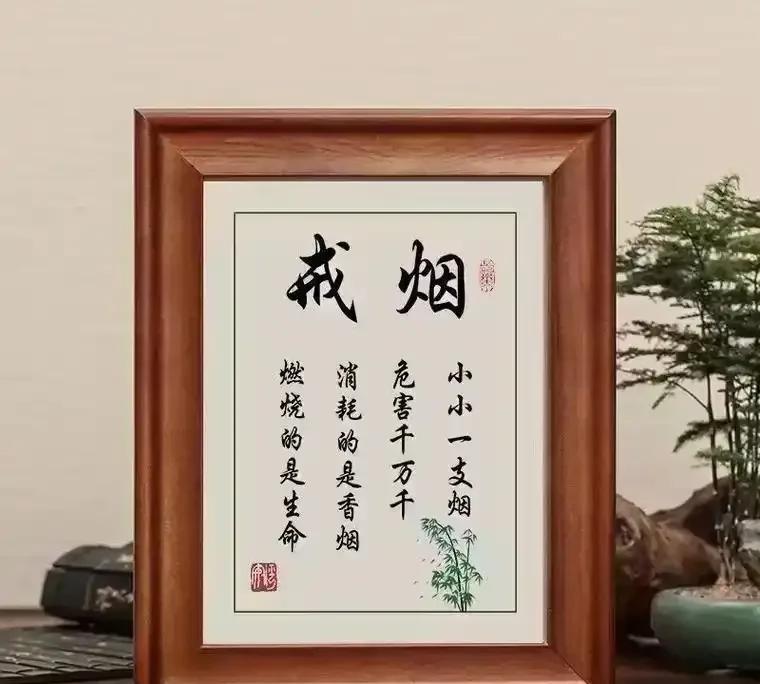 戒烟
小小一支烟
危害千万千
消耗的是香烟
燃烧的是生命